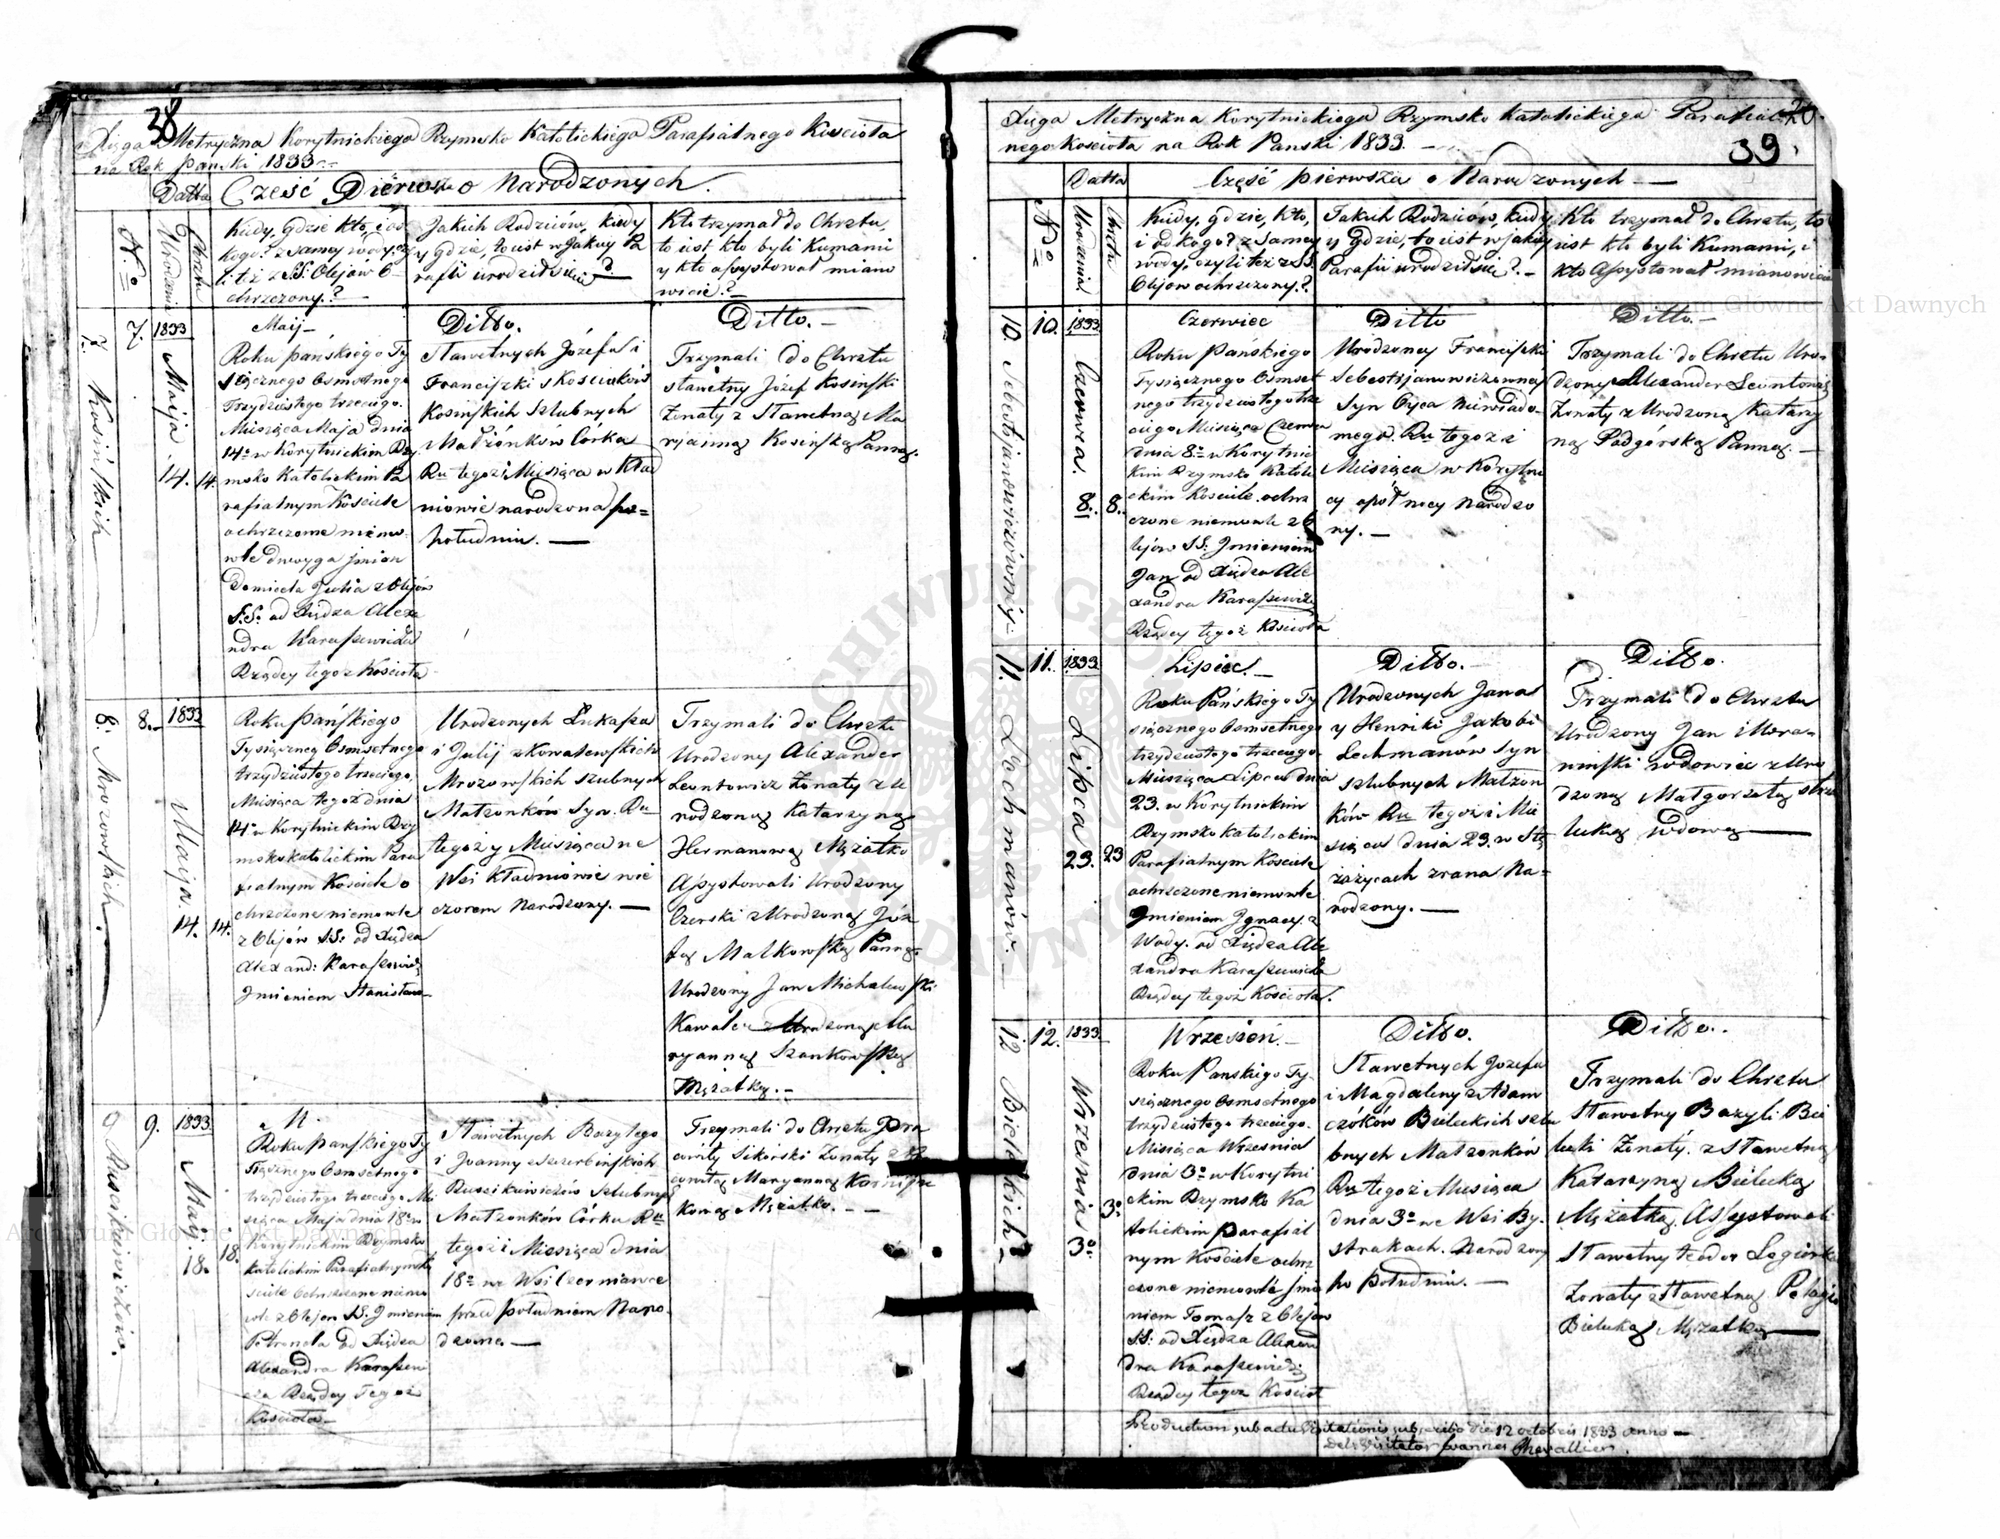 38
Xięga Metryczna Korytnickiego Rzymsko Katolickiego Parafialnego Kościoła
na Rok Pański 1833
Datta Cześć Pierwsza o Narodzonych.
N.o
Urodzenia
Chrztu
Kiedy, Gdzie kto, i od
kogo? z samey wody, czy
li też z SS: Olejów o-
chrzczony.?
Jakich Rodziców, kiedy
y gdzie, to iest w Jakiey Pa
rafii urodził się?
Kto trzymał do Chrztu,
to iest kto byli Kumami
y kto assystował miano
wicie.?
7. Kosińskich
7.
1833
Maija
14. 14.
Maij
Roku Pańskiego Ty
siącznego Osmsetnego
Trzydziestego trzeciego.
Miesiąca Maja dnia
14o w Korytnickim Rzy
msko Katolickim Pa
rafialnym Kościele
ochrzczone niemo
wle dwoyga jmion
Domicela Julia z Olejów
S.S: od Xiędza Alexa
ndra Karaszewicza
Rządcy tegoz Kościoła
Ditto.
Sławetnych Józefa i
Franciszki z Kosciuków
Kosińskich szlubnych
Małżonków Córka
Ru tegoż i Miesiąca w Kład
niowie narodzona po=
południu.
Ditto.
Trzymali do Chrztu
sławetny Józef Kosiński
Żonaty z Sławetną Ma
rjanną Kosińską Panną.
8. Mrozowskich.
8.
1833
Maija.
14. 14.
Roku Pańskiego
Tysiączneg Osmsetnego
trzydziestego trzeciego,
Miesiąca tegoż dnia
14o w Korytnickim Rzy
msko katolickim Para
fialnym Kościele o
chrzczone niemowle
z Olejów SS: od Xiędza
Alexand: Karaszewicz
Jmieniem Stanisław
Urodzonych Łukasza
i Julij z Kowalewskich
Mrozowskich szlubnych
Małzonków Syn. Ru
tegoż y Miesiąca we
Wsi Kładniowie wie
czorem Narodzony.
Trzymali do Chrztu
Urodzony Alexander
Leontowicz Żonaty z U
rodzoną Katarzyną
Hermanową Mężatką
Assystowali Urodzony
Czerski z Urodzoną Józ
fą Malkowską Panną.
Urodzony Jan Michalewski
Kawaler z Urodzoną Ma
ryanną Szankowską
Mężatką.
9 Ruscikiewiczów.
9.
1833
Maij
18. 18.
Roku Pańskiego Ty
siącznego Osmsetnego
trzydziestego trzeciego Mie
siąca Maja dnia 18o w
Korytnickim Rzymsko
katolickim Parafialnym Ko
ściele Ochrzczone niemo
wle z Olejow SS. Jmieniem
Petronela od Xiędza
Alexandra Karaszewi
cza Rządcy Tegoż
Kościoła
Sławetnych Bazylego
i Joanny z Szczerbińskich
Ruscikiewiczów Szlubnych
Małzonków Córka Ru
tegoż i Miesiąca dnia
18o we Wsi Czerniawce
przed południem Naro
dzona.
Trzymali do Chrztu
Sikorski Żonaty
Maryanną
Mężatką.
Xięga Metryczna Korytnickiego Rzymsko Katolickiego Parafial
nego Kościoła na Rok Panski 1833.
39.
Datta Część pierwsza o Narodzonych
No
Urodzenia
Chrztu
Kiedy, gdzie, kto,
i od kogo? z samey
wody, czyli też z SS.
Olejow ochrzczony.?
Jakich Rodziców, kiedy
y gdzie, to iest w jakiey
Parafii urodził się?
Kto trzymał do Chrztu, to
iest kto byli Kumami, i
kto Assystował mianowicie
10. Sebestijanowiczówny
10.
1833
Czerwca.
8. 8.
Czerwiec
Roku Pańskiego
Tysiącznego Osmset
nego trzydziestego trze
ciego Miesiąca Czerwca
dnia 8o w Korytnic
kim Rzymsko Katoli
ckim Kościele ochrz
czone niemowle z O
lejów SS: Jmieniem
Jan od Xiędza Ale
xandra Karaszewicza
Rządcy tegoż Kościoła
Ditto
Urodzoney Franciszki
Sebestijanowiczowney
Syn Oyca niewiado
mego. Ru tegoż i
Miesiąca w Korytni
cy o pół nocy Narodzo
ny.
Ditto.
Trzymali do Chrztu Uro-
dzony Alexander Leontowicz
Żonaty z Urodzoną Katarzy
ną Podgórską Panną.
11. Lochmanów.
11.
1833
Lipca
23. 23
Lipiec.
Roku Pańskiego Ty
siącznego Osmsetnego
trzydziestego trzeciego
Miesiąca Lipca dnia
23. w Korytnickim
Rzymsko katolickim
Parafialnym Kościele
ochrzczone niemowle
Jmieniem Jgnacy z
Wody. od Xiędza Ale
xandra Karaszewicza
Rządcy tegoż Kościoła.
Ditto.
Urodzonych Jana
y Henriki Jakobi
Lochmanów Syn
szlubnych Małzon
ków Ru tegoż i Mie
siąca dnia 23. w
zrana Na=
rodzony.
Ditto.
Trzymali do Chrztu
Urodzony Jan Mora
wdowiec z Uro
dzoną Małgorzatą
wdową
12 Bieleckich
12.
1833
Wrzesnia
3o. 3o
Wrzesień.
Roku Panskiego Ty-
siącznego Osmsetnego
trzydziestego trzeciego.
Miesiąca Wrzesnia
dnia 3o w Korytni
ckim Rzymsko Ka
tolickim parafial
nym Kościele ochrz
czone niemowle jmie
niem Tomasz z Olejow
SS: od Xiędza Alexan
dra Karaszewicza
Rządcy tegoz Kościoła
Ditto.
Sławetnych Jozefa
i Magdaleny z Adam
czóków Bieleckich szlu
bnych Małzonków
Ru tegoż Miesiąca
dnia 3o we Wsi By-
strakach. Narodzony
po południu.
Ditto.
Trzymali do Chrztu
Sławetny Bazyli Bie
lecki Żonaty. z Sławetną
Katarzyną Bielecką
Mężatką. Assystowali
Sławetny Teodor
Żonaty z Sławetną Pelagią
Bielecką Mężatką
Productum sub actu Visitationis subscribo die 12 octobris 1833 anno
Visitator Joannes Chevallier.
Archiwum Główne Akt Dawnych
Archiwum Główne Akt Dawnych
ARCHIWUM GŁÓWNE AKT DAWNYCH